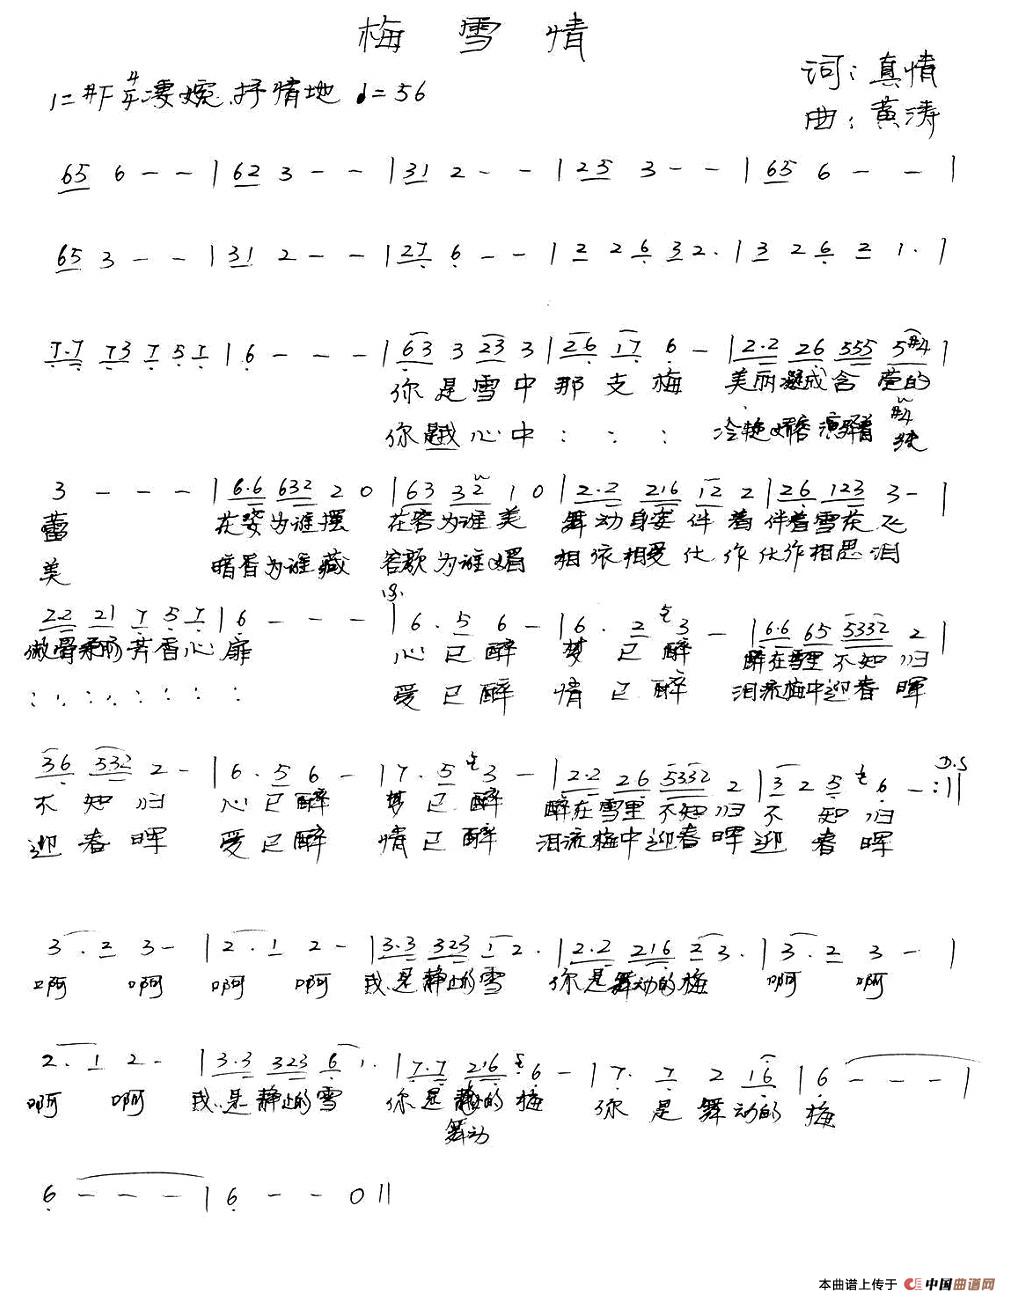 梅雪情
1=#F 4/4 凄婉.抒情地 ♩=56
词:真情
曲:黄涛
65 6 - - | 62 3 - - | 31 2 - - | 25 3 - - | 65 6 - - |
65 3 - - | 31 2 - - | 27 6 - - | 2 2 6 3 2. | 3 2 6 2 1. |
7.7 73 7 5 7 | 6 - - - | 63 3 23 3 | 26 17 6 - | 2.2 26 555 5#4 |
你是雪中那支梅 美丽凝成含苞的
你是我心中 : : : 冷艳娇容演绎着
3 - - - | 6.6 632 2 0 | 63 32 1 0 | 2.2 216 12 2 | 26 123 3 - |
蕾 花姿为谁摆 花容为谁美 舞动身姿伴着伴着雪花飞
美 暗香为谁藏 容颜为谁媚 相依相爱化作化作相思泪
22 21 7 5 7 | 6 - - - | 6. 5 6 - | 6. 2 3 - | 6.6 65 5332 2 |
傲骨柔肠芳香心扉 心已醉 梦已醉 醉在雪里不知归
: : : : : : : : 爱已醉 情已醉 泪流梅中迎春晖
36 532 2 - | 6. 5 6 - | 7. 5 3 - | 2.2 26 5332 2 | 3 2 5 6 - :|| D.S
不知归 心已醉 梦已醉 醉在雪里不知归 不知归
迎春晖 爱已醉 情已醉 泪流梅中迎春晖 迎春晖
3. 2 3 - | 2. 1 2 - | 3.3 323 1 2. | 2.2 216 2 3. | 3. 2 3 - |
啊 啊 啊 啊 我是静止的雪 你是舞动的梅 啊 啊
2. 1 2 - | 3.3 323 6 1. | 7.7 216 6 - | 7. 7 2 16 | 6 - - - |
啊 啊 我是静止的雪 你是的梅 你是舞动的梅
舞动
6 - - - | 6 - - 0 ||
本曲谱上传于 中国曲谱网